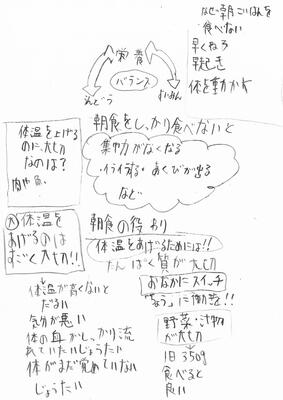 なぜ朝ごはんを
食べない
早くねる
早起き
体を動かす
栄養
バランス
うんどう
すいみん
体温を上げる
のに大切
なのは?
肉や魚
朝食をしっかり食べないと
集中力がなくなる
イライラする・あくびが出る
など
朝食の役わり
体温をあげるためには!!
たんぱく質が大切
大 体温を
あげるのは
すごく大切!!
おなかにスイッチ
「ちょう」に働きを!!
体温が高くないと
だるい
気分が悪い
体の血がしっかり流
れていたいじょうたい
体がまだ覚めていない
じょうたい
野菜・汁物
が大切
1日350g
食べると
良い